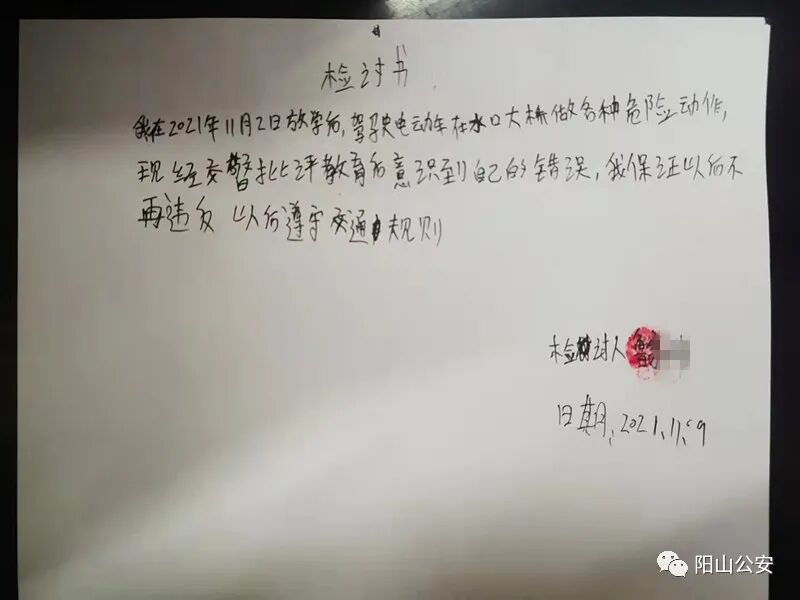 检讨书
我在2021年11月2日放学后,驾驶电动车在水口大桥做各种危险动作,
现经交警批评教育后意识到自己的错误,我保证以后不
再违反 以后遵守交通规则
检讨人
日期:2021.11.9
阳山公安